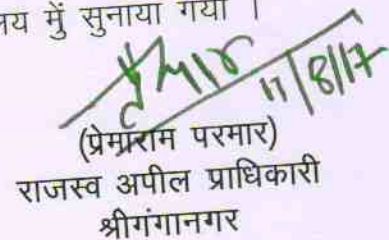 में सुनाया गया ।
11/8/17
(प्रेमाराम परमार)
राजस्व अपील प्राधिकारी
श्रीगंगानगर